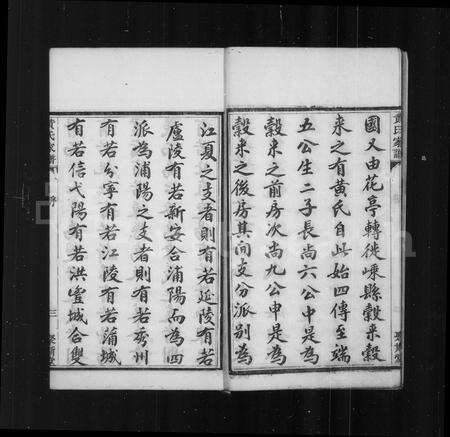 國又由花亭轉徙嵊縣穀来穀
来之有黃氏自此始四傳至端
五公生二子長尚六公申是為
穀来之前房次尚九公申是為
穀来之後房其间支分派别為
江夏之支者則有若延陵有若
廬陵有若新安合浦陽而為四
派為浦陽之支者則有若秀州
有若分寧有若江陵有若蒲城
有若信弋陽有若洪豐城合雙
黃氏家譜
三